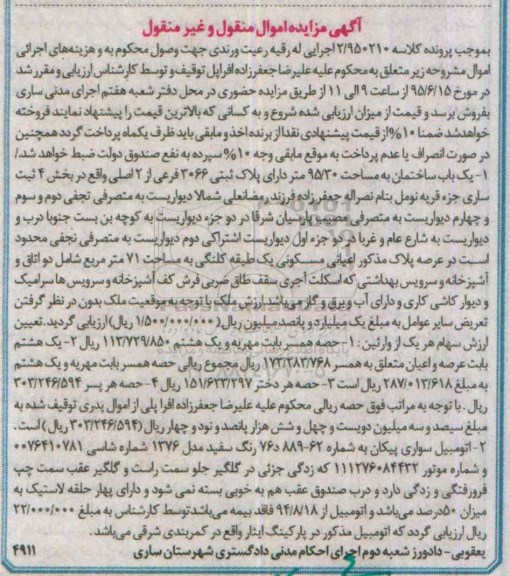 آگهی مزایده اموال منقول و غیر منقول
بموجب پرونده کلاسه ۲/۹۵۰۲۱۰ اجرایی له رقیه رعیت ورندی جهت وصول محکوم به و هزینه‌های اجرائی
اموال مشروحه زیر متعلق به محکوم علیه علیرضا جعفرزاده افراپل توقیف و توسط کارشناس ارزیابی و مقرر شد
در مورخ ۹۵/۶/۱۵ از ساعت ۹ الی ۱۱ از طریق مزایده حضوری در محل دفتر شعبه هفتم اجرای مدنی ساری
بفروش برسد و قیمت از میزان ارزیابی شده شروع و به کسانی که بالاترین قیمت را پیشنهاد نمایند فروخته
خواهد شد ضمنا ۱۰% از قیمت پیشنهادی نقدا از برنده اخذ و مابقی باید ظرف یکماه پرداخت گردد همچنین
در صورت انصراف یا عدم پرداخت به موقع مابقی وجه ۱۰% سپرده به نفع صندوق دولت ضبط خواهد شد./
۱- یک باب ساختمان به مساحت ۹۵/۳۰ متر دارای پلاک ثبتی ۳۰۶۶ فرعی از ۲ اصلی واقع در بخش ۴ ثبت
ساری جزء قریه نومل بنام نصراله جعفرزاده فرزند رمضانعلی شمالا دیواریست به متصرفی نجفی دوم و سوم
و چهارم دیواریست به متصرفی مصیب پارسیان شرقا در دو جزء دیواریست به کوچه بن بست جنوبا درب و
دیواریست به شارع عام و غربا در دو جزء اول دیواریست اشتراکی دوم دیواریست به متصرفی نجفی محدود
است در عرصه پلاک مذکور اعیانی مسکونی یک طبقه کلنگی به مساحت ۷۱ متر مربع شامل دو اتاق و
آشپزخانه و سرویس بهداشتی که اسکلت آجری سقف طاق ضربی فرش کف آشپزخانه و سرویس ها سرامیک
و دیوار کاشی کاری و دارای آب و برق و گاز می باشد ارزش ملک با توجه به موقعیت ملک بدون در نظر گرفتن
تعریض سایر عوامل به مبلغ یک میلیارد و پانصد میلیون ریال (۱/۵۰۰/۰۰۰/۰۰۰ ریال) ارزیابی گردید. تعیین
ارزش سهام هر یک از وارثین: ۱- حصه همسر بابت مهریه و یک هشتم ۱۱۳/۷۲۹/۸۵۰ ریال ۲- یک هشتم
بابت عرصه و اعیان متعلق به همسر ۱۷۳/۲۸۳/۷۶۸ ریال مجموع ریالی حصه همسر بابت مهریه و یک هشتم
به مبلغ ۲۸۷/۰۱۳/۶۱۸ ریال است ۳- حصه هر دختر ۱۵۱/۶۲۳/۲۹۷ ریال ۴- حصه هر پسر ۳۰۳/۲۴۶/۵۹۴
ریال. با توجه به مراتب فوق حصه ریالی محکوم علیه علیرضا جعفرزاده افرا پلی از اموال پدری توقیف شده به
مبلغ سیصد و سه میلیون دویست و چهل و شش هزار پانصد و نود و چهار ریال (۳۰۳/۲۴۶/۵۹۴ ریال) است.
۲- اتومبیل سواری پیکان به شماره ۶۲-۸۸۹ د۷۶ رنگ سفید مدل ۱۳۷۶ شماره شاسی ۰۰۷۶۴۱۰۷۸۱
و شماره موتور ۱۱۱۲۷۶۰۸۴۴۲۲ که زدگی جزئی در گلگیر جلو سمت راست و گلگیر عقب سمت چپ
فرورفتگی و زدگی دارد و درب صندوق عقب هم به خوبی بسته نمی شود و دارای چهار حلقه لاستیک به
میزان ۵۰درصد می‌باشد و اتومبیل از ۹۴/۸/۱۸ فاقد بیمه می‌باشد توسط کارشناس به مبلغ ۲۲/۰۰۰/۰۰۰
ریال ارزیابی گردد که اتومبیل مذکور در پارکینگ ایثار واقع در کمربندی شرقی می‌باشد.
یعقوبی- دادورز شعبه دوم اجرای احکام مدنی دادگستری شهرستان ساری ۴۹۱۱